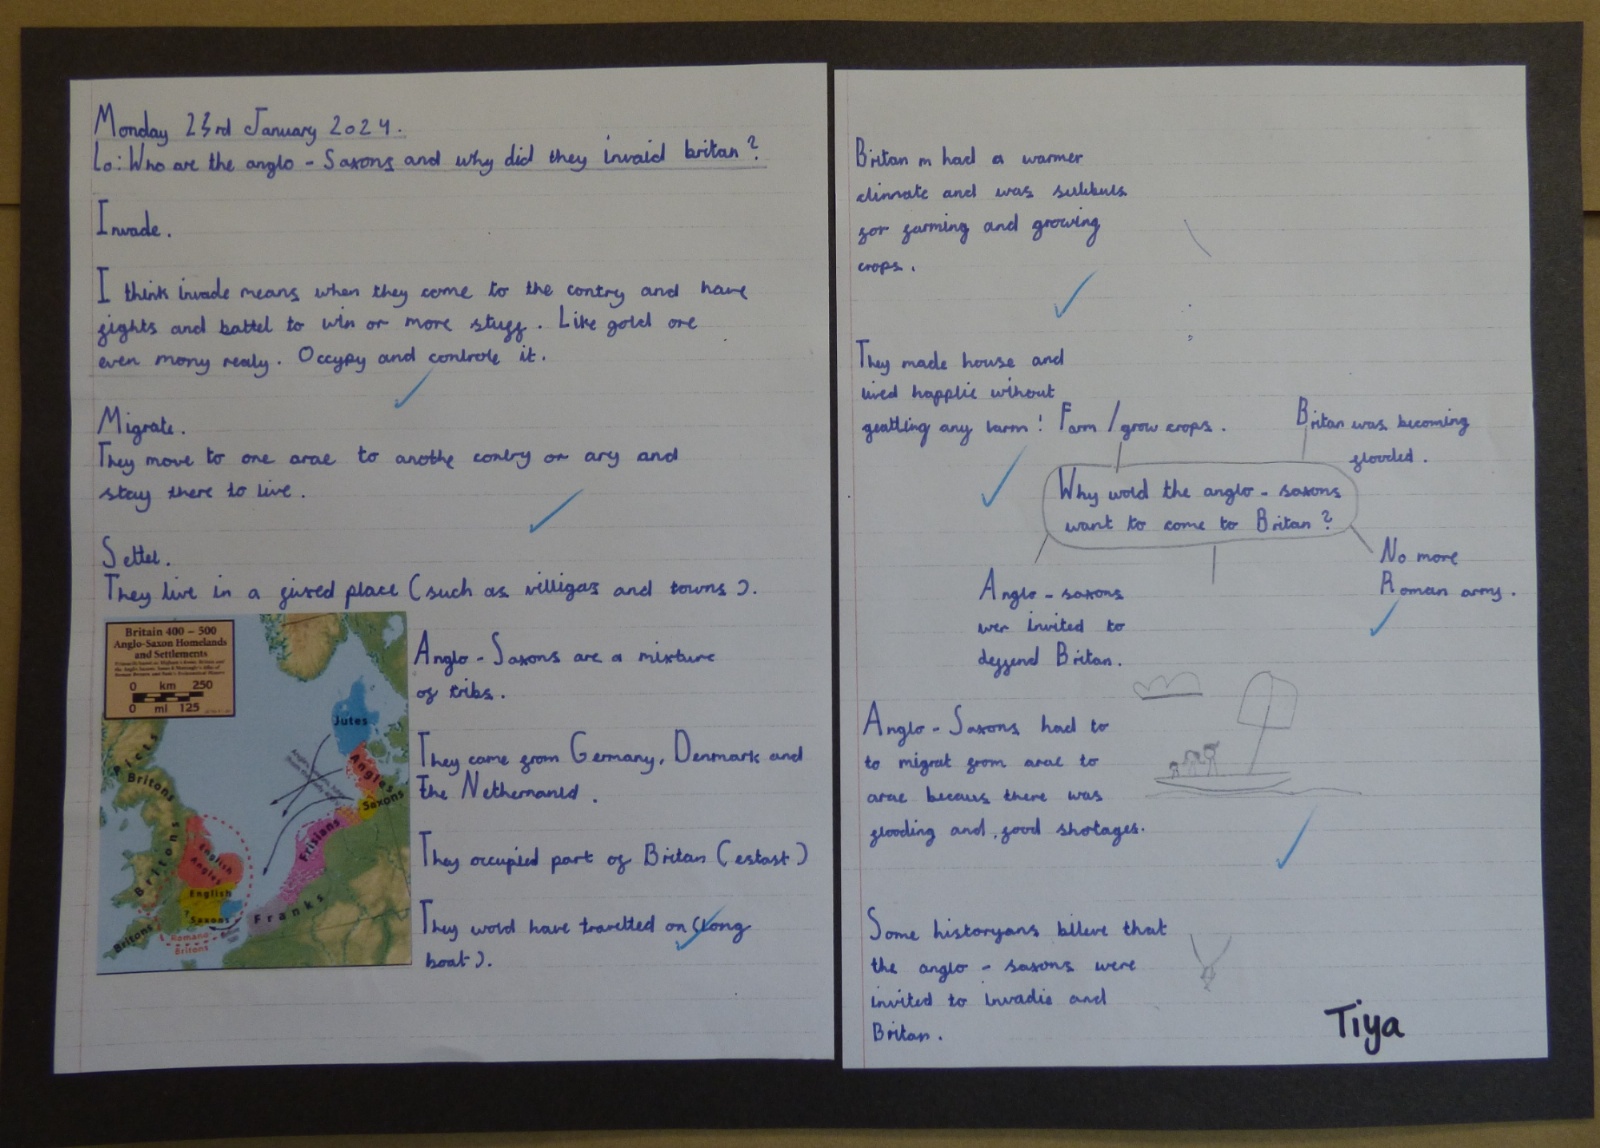 Monday 23rd January 2024.
Lo: Who are the anglo - Saxons and why did they invaid britan?
Invade.
I think invade means when they come to the contry and have
fights and battel to win or more stuff. Like gold ore
even mony realy. Occypy and controle it.
Migrate.
They move to one arae to anothe contry or ary and
stay there to live.
Settel.
They live in a fixed place (such as villigas and towns).
Britain 400 – 500
Anglo-Saxon Homelands
and Settlements
0 km 250
0 mi 125
Jutes
Angles
Saxons
Frisians
Franks
Picts
Britons
Britons
English
Angles
English
Saxons
Britons
Romano-
Britons
Anglo - Saxons are a mixture
of tribs.
They came from Germany, Denmark and
the Nethernanld.
They occupied part of Britan (estast)
They wold have travelted on (long
boat).
Britan m had a warmer
climate and was
for farming and growing
crops.
They made house and
lived happlie without
geatting any harm!
Farm / grow crops.
Britan was becoming
flooded.
Why wold the anglo - saxons
want to come to Britan?
Anglo - saxons
wer invited to
deffend Britan.
No more
Roman army.
Anglo - Saxons had to
to migrat from arae to
arae becaus there was
flooding and food shotages.
Some historyans bileve that
the anglo - saxons were
invited to invadie and
Britan.
Tiya